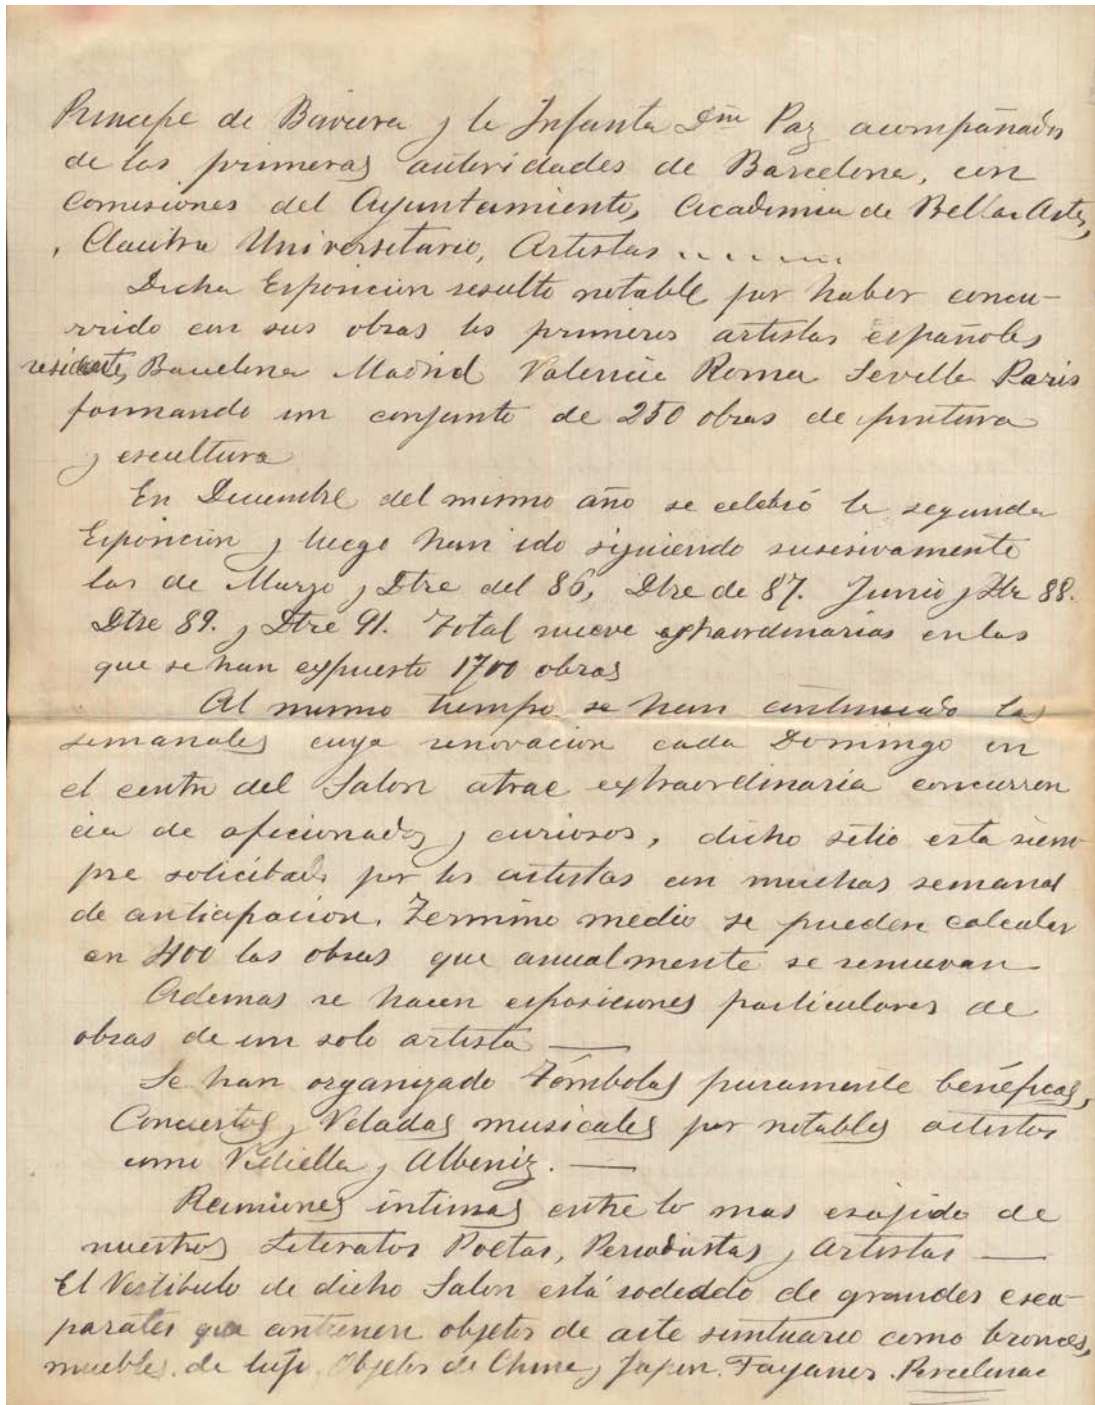 Principe de Baviera y la Infanta Dña Paz acompañados
de las primeras autoridades de Barcelona, con
Comisiones del Ayuntamiento, Academia de Bellas Artes,
, Claustro Universitario, Artistas . . . . . . .
Dicha Esposicion resultó notable por haber concu-
rrido con sus obras los primeros artistas españoles
residentes, Barcelona Madrid Valencia Roma Sevilla Paris
formando un conjunto de 250 obras de pintura
y escultura
En Diciembre del mismo año se celebró la segunda
Esposicion y luego han ido siguiendo susesivamente
las de Marzo y Dtre del 86, Dtre de 87. Junio y Dtr 88.
Dtre 89. y Dtre 91. Total nueve extraordinarias en las
que se han expuesto 1700 obras
Al mismo tiempo se han continuado las
semanales cuya renovacion cada Domingo en
el centro del Salon atrae extraordinaria concurren
cia de aficionados y curiosos, dicho sitio está siem
pre solicitado por los artistas con muchas semanas
de anticipacion. Termino medio se pueden calcular
en 400 las obras que anualmente se renuevan
Ademas se hacen esposiciones particulares de
obras de un solo artista —
Se han organizado Tómbolas puramente benéficas,
Conciertos y Veladas musicales por notables artistas
como Vidiella y Albeniz. —
Reuniones íntimas entre lo mas escojido de
nuestros Literatos Poetas, Periodistas y Artistas —
El Vestibulo de dicho Salon está rodeado de grandes esca-
parates que contienen objetos de arte suntuario como bronces,
muebles de lujo. Objetos de China y Japon. Fayances. Porcelanas